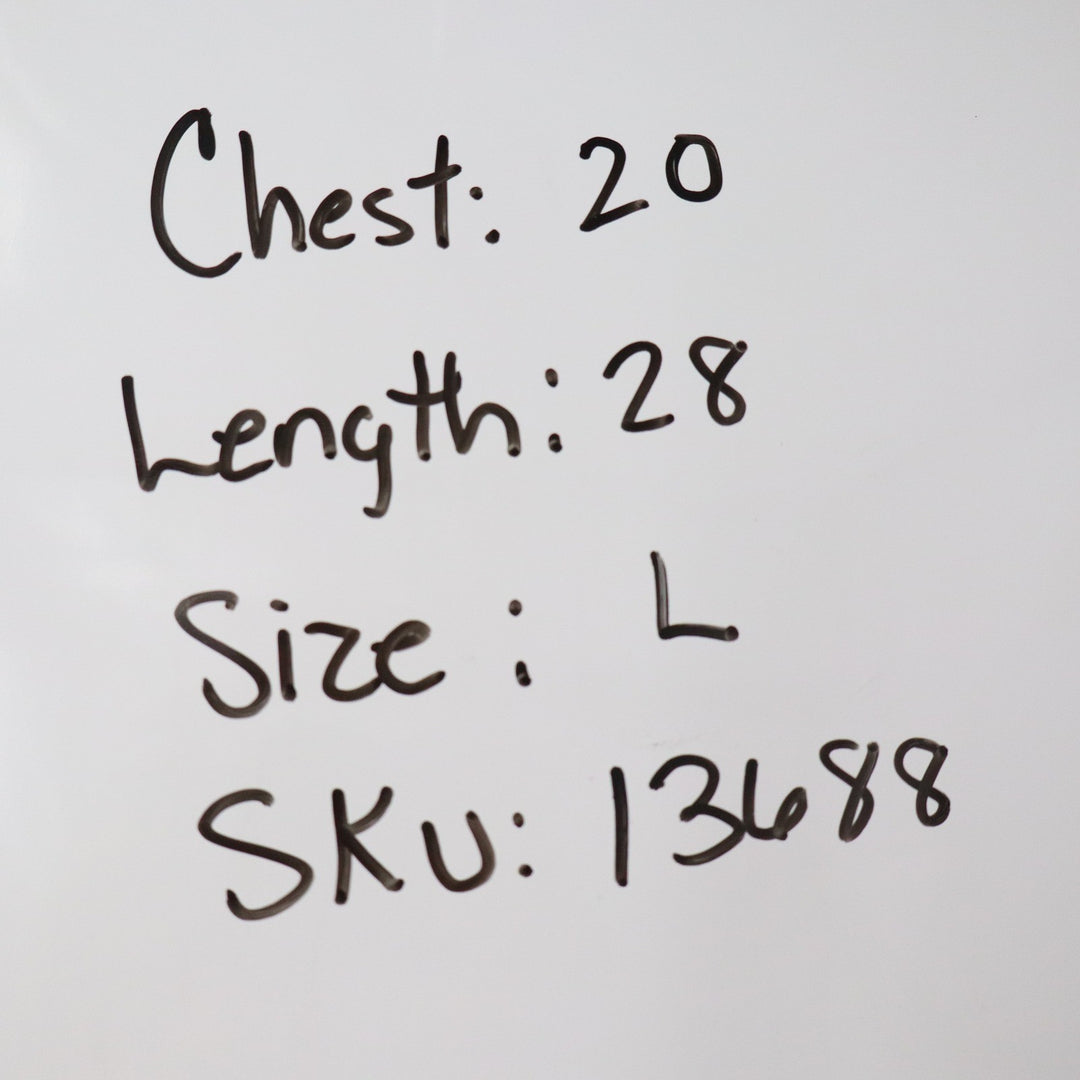 Chest: 20
Length: 28
Size: L
SKU: 13688